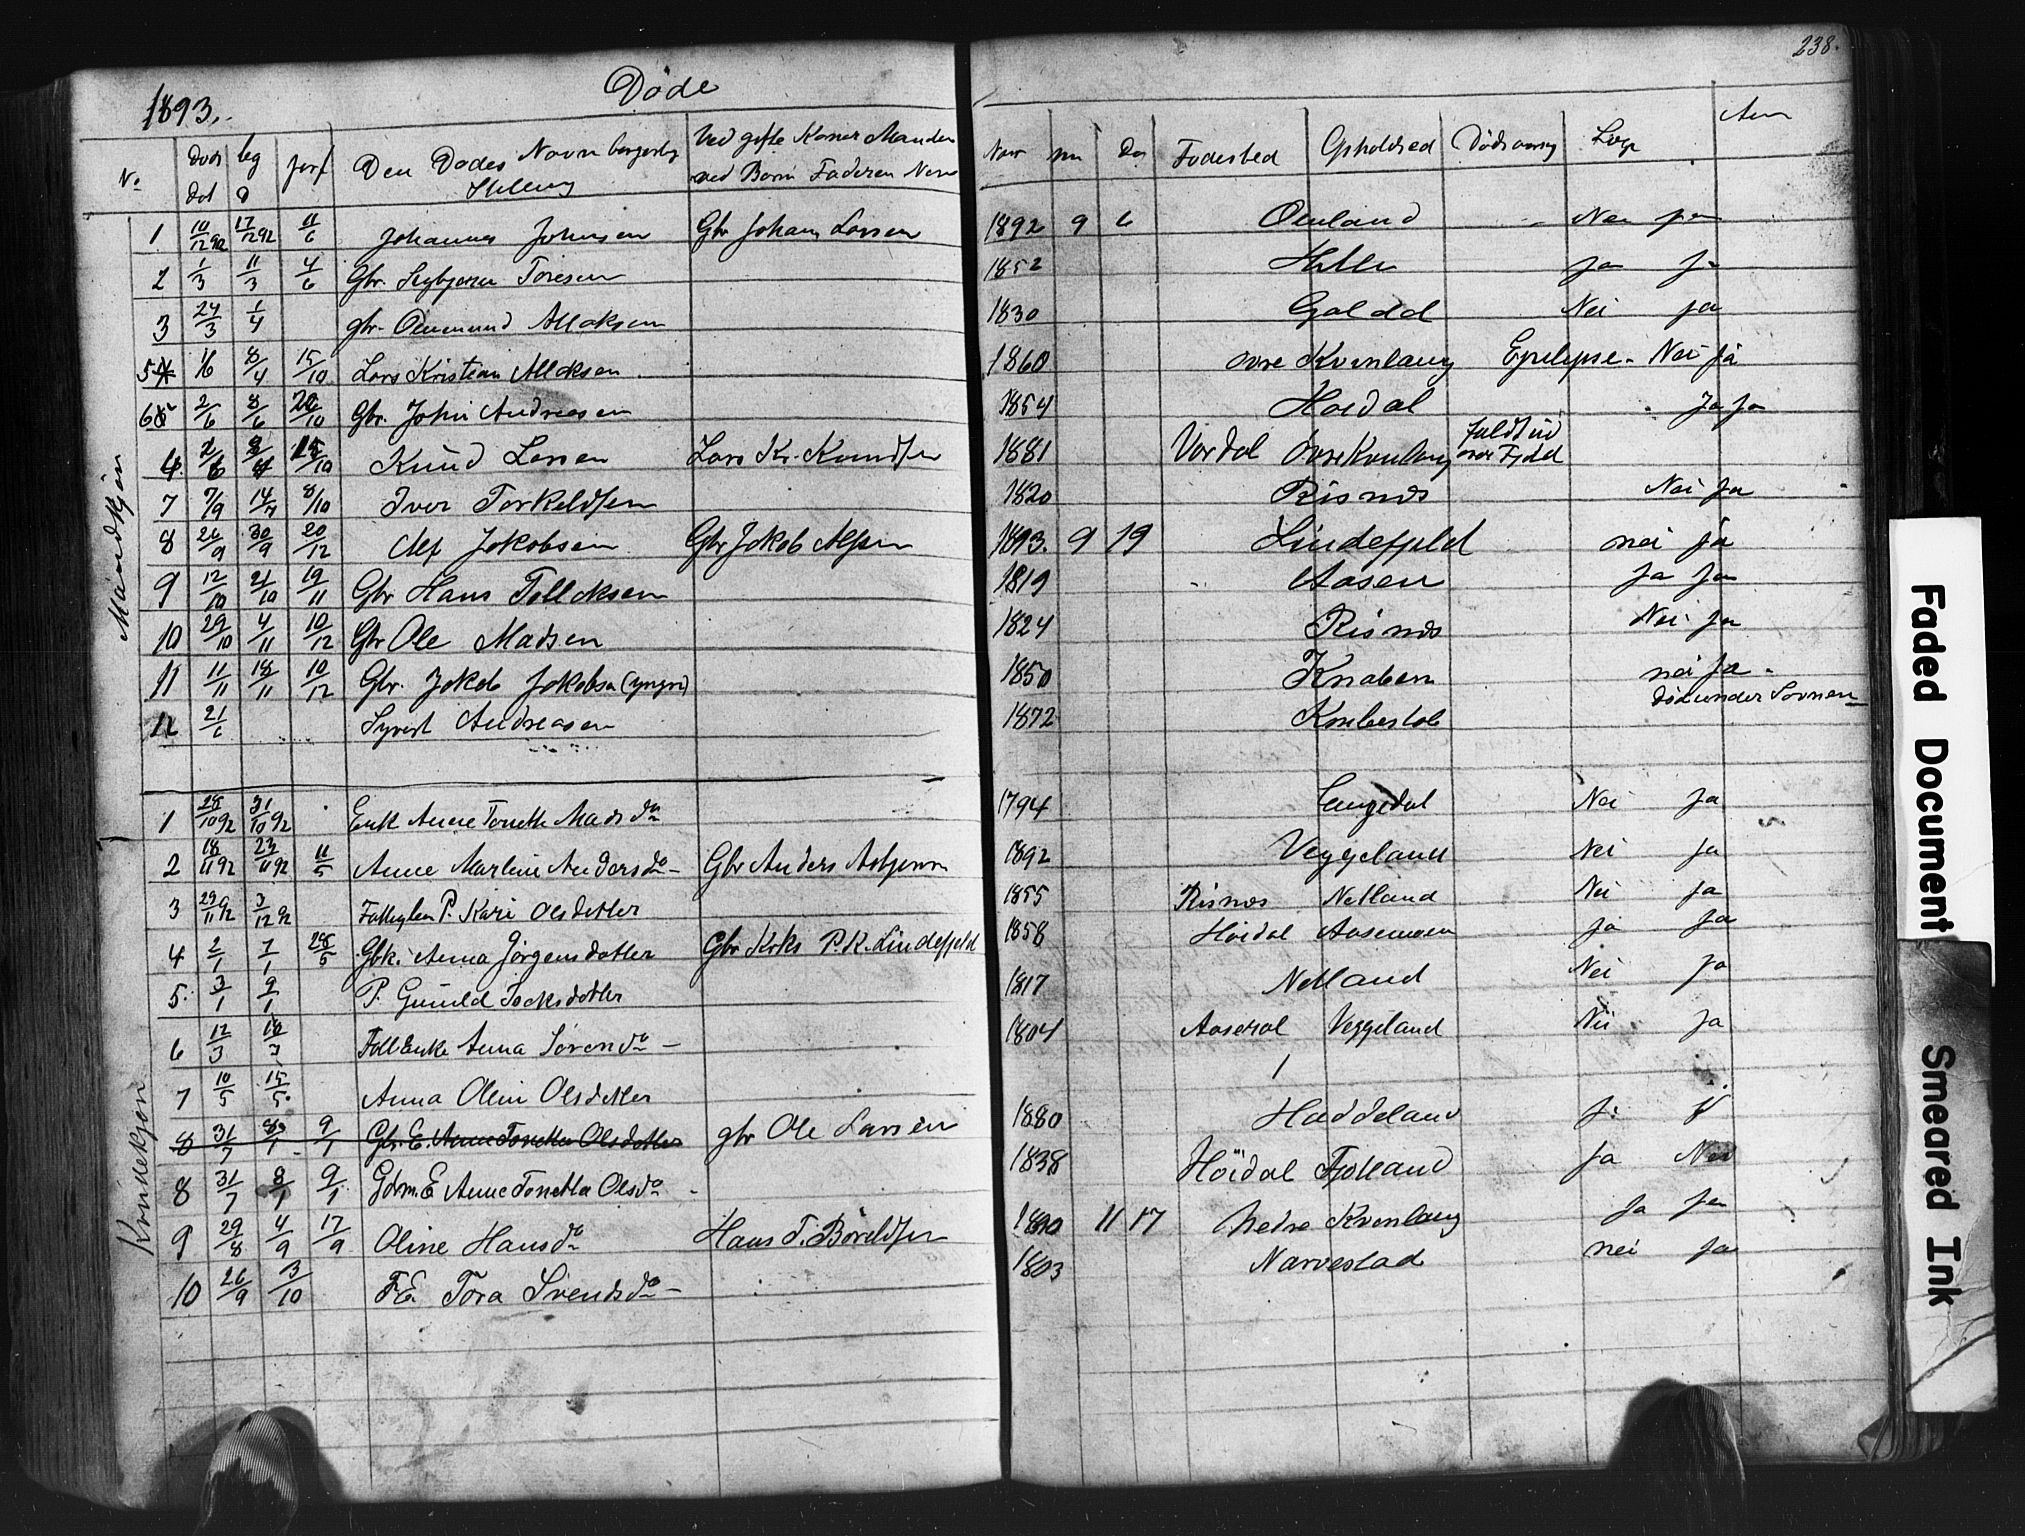 238.
1893. Døde
No Døds dat beg d jorf Den Dødes Navn borgerlig Stilling Ved gifte Koner Manden ved Børn Faderen Navn Aar mn Da Fødested Opholdssted Dødsaarsag Læge Anm
Mandkjøn
1 10/12 92 17/12 92 11/6 Johannes Johnsen Gbr Johan Larsen 1892 9 6 Omland Nei ja
2 1/3 11/3 4/6 Gbr. Sigbjørn Toresen 1852 Hille ja ja
3 24/3 1/4 gbr. Ommund Allaksen 1830 Galdal Nei ja
5 1/6 8/4 15/10 Lars Kristian Allaksen 1860 øvre Kvinlaug Epelepse. Nei ja
6 2/6 8/6 20/10 Gbr. John Andreasen 1854 Høidal Ja ja
4. 2/6 8/4 15/10 Knud Larsen Lars Kr. Knudsen 1881 Vordal Øvre Kvinlaug faldt ud over Fjeld
7 7/9 14/7 8/10 Iver Torkeldsen 1820 Risnes Nei Ja
8 26/9 30/9 20/12 Alf Jakobsen Gbr Jakob Alfsen 1893. 9 19 Lindefjeld nei ja
9 12/10 21/10 19/11 Gbr Hans Tollaksen 1819 Aasen Ja Ja
10 29/10 4/11 10/12 Gbr Ole Madsen 1824 Risnes Nei Ja
11 11/11 18/11 10/12 Gbr. Jakob Jakobsen (yngre) 1850 Knaben nei Ja.
12 21/6 Syvert Andreasen 1872 Knibestøl død under Søvnen
Kvindekjøn
1 28/10 92 31/10 92 Enk Anne Tonette Madsda 1794 Langedal Nei Ja
2 18/11 92 23/11 92 11/5 Anne Marline Andersda - Gbr Anders Asbjørnsn 1892 Veggeland Nei ja
3 29/11 92 3/12 92 Fattiglem P. Kari Olsdotter 1855 Risnes Netland Nei ja
4 2/1 7/1 28/5 Gbk. Anna Jørgensdatter Gbr Krks P.K. Lindefjeld 1858 Høidal Aasemoen ja ja
5. 3/1 9/1 P. Gunild Isaksdotter 1817 Netland Nei ja
6 12/3 18/3 Fatt Enke Anna Sørensda - 1804 Aaseral Veggeland Nei ja
7 10/5 15/5 Anna Olene Olsdotter
8 31/7 8/1 9/1 Gbr. E. Anne Tonetta Olsdotter gbr Ole Larsen 1880 Haddeland ja
8 31/7 8/1 9/1 Gdrm. E Anne Tonetta Olsda - 1838 Höidal Fjotland ja Nei
9 29/8 4/9 17/9 Oline Hansda Hans T. Børeldsen 1890 11 17 Nedre Kvinlaug Ja ja
10 26/9 3/10 F.E. Tora Svendsda - 1803 Narvestad nei ja
Faded Document
Smeared Ink